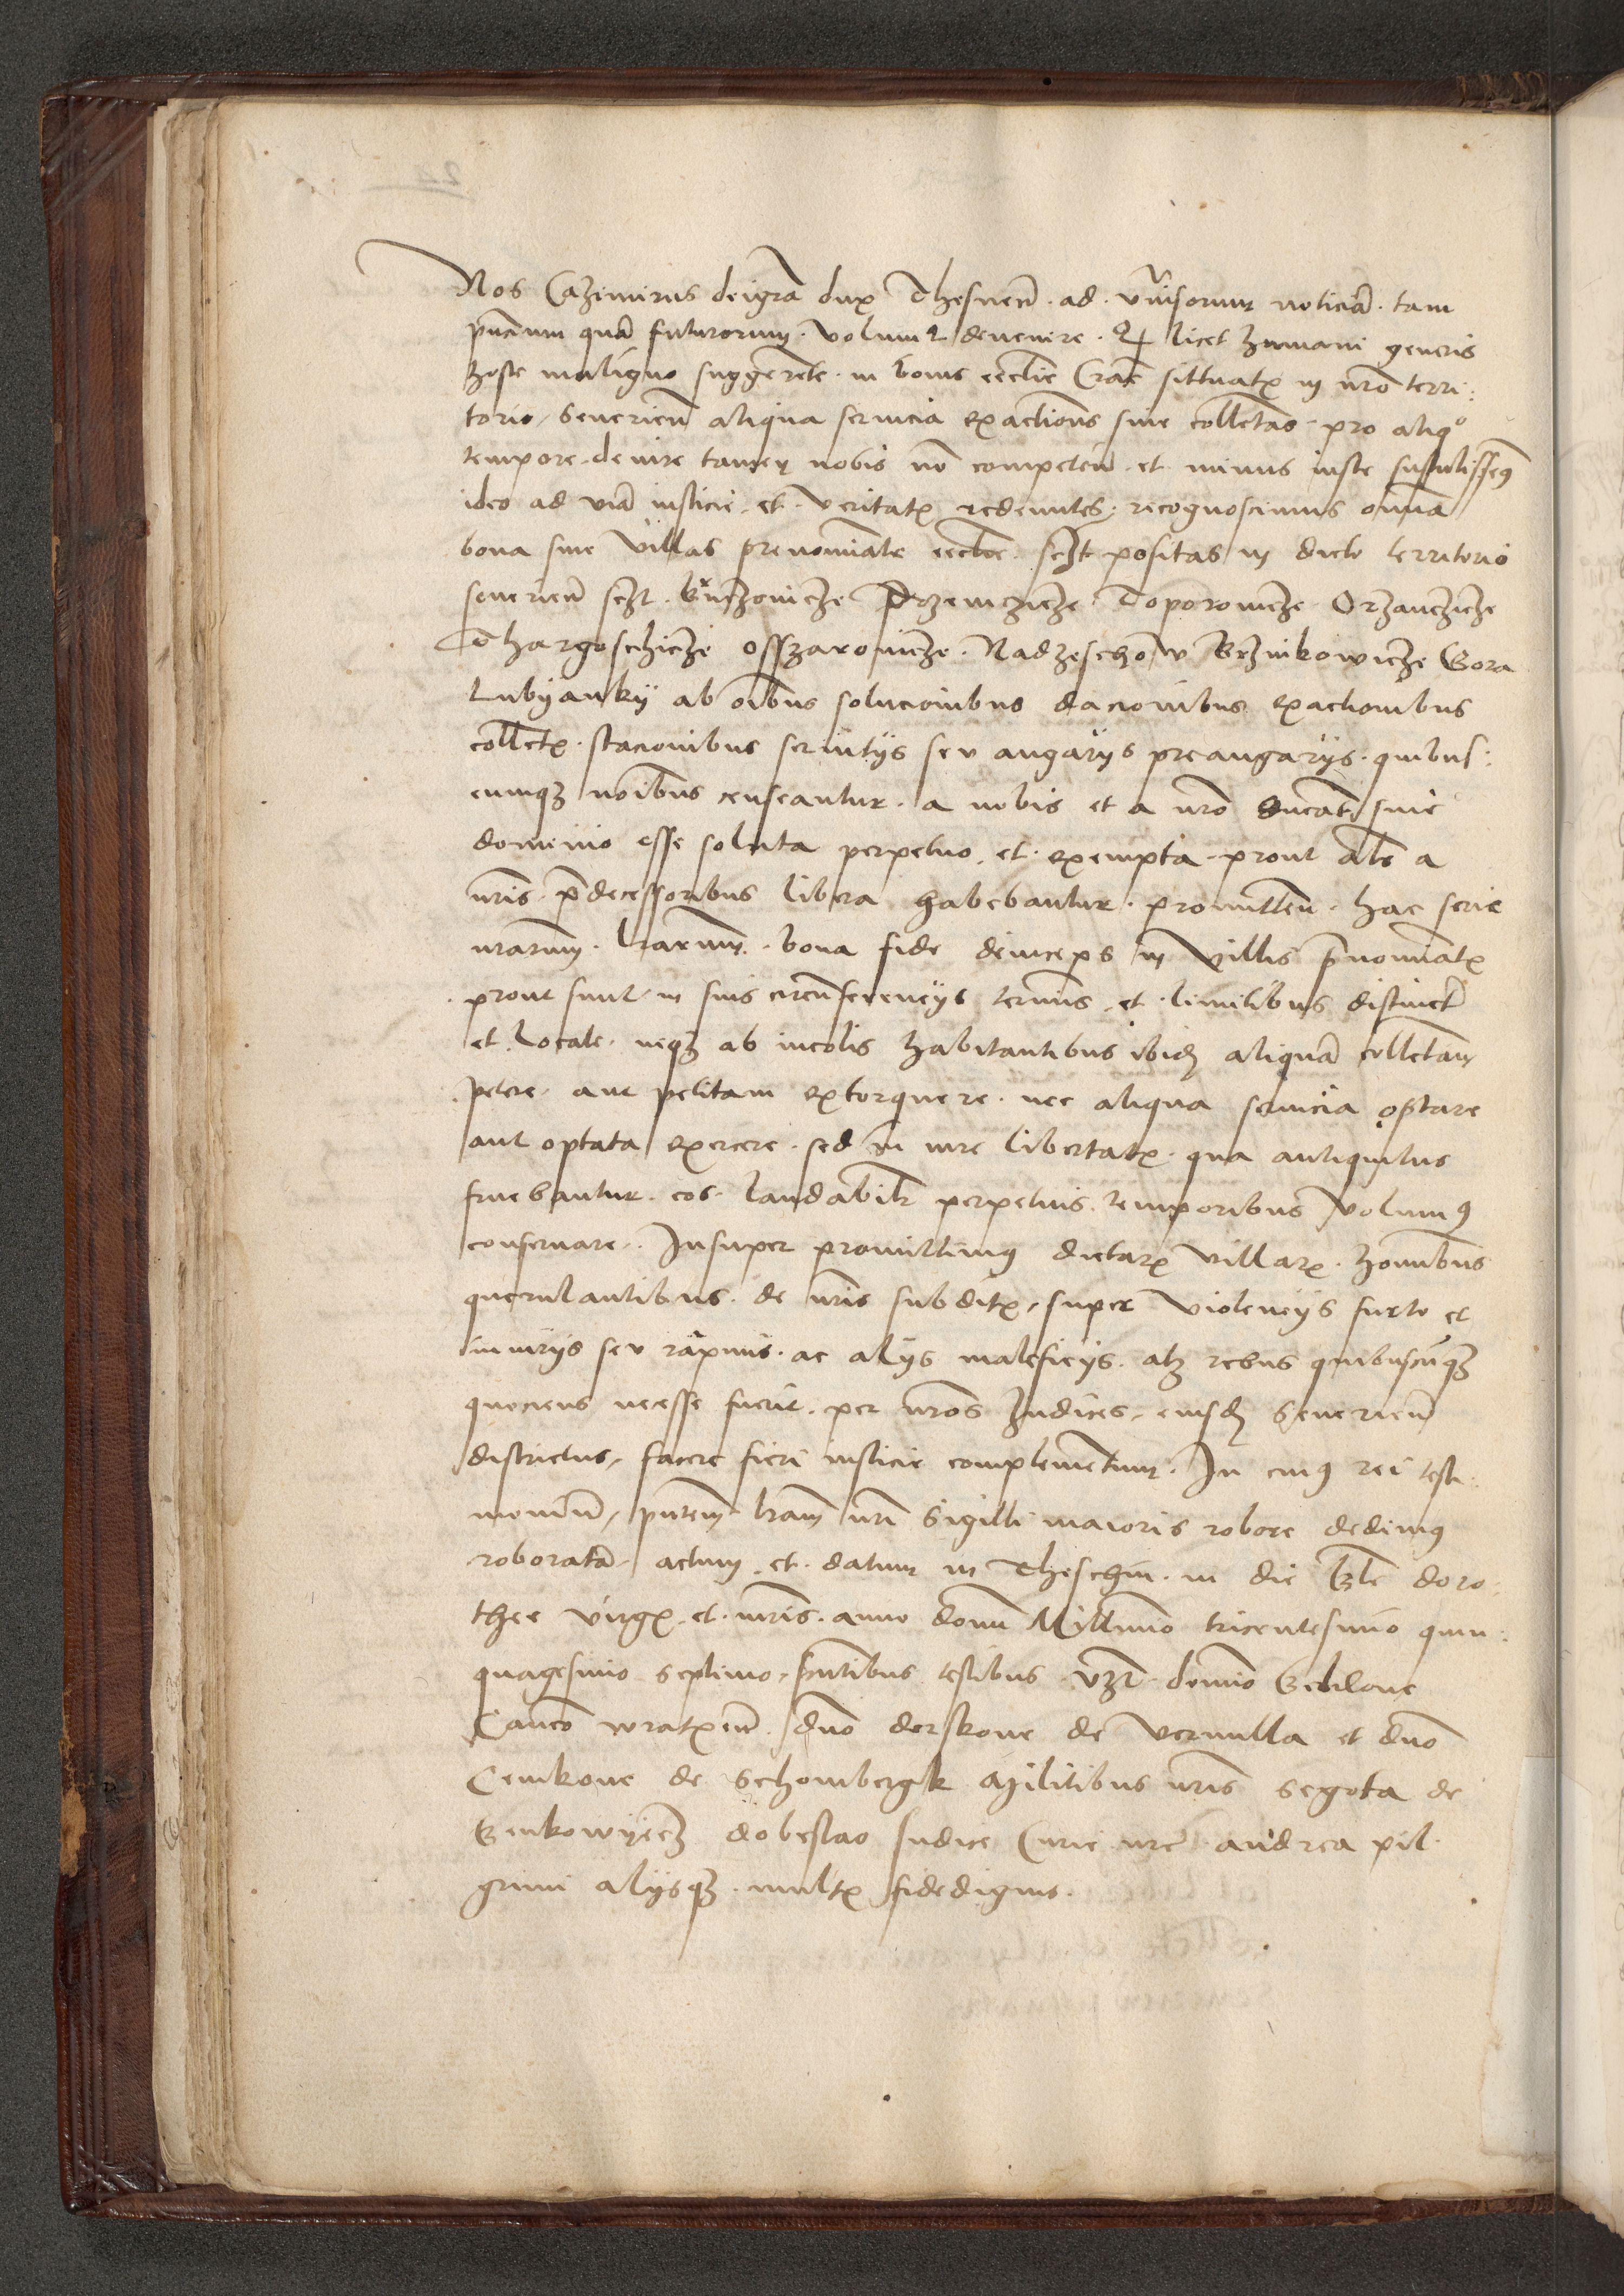 Nos Cazimirus dei gr̄a dux Thesnen̄ . ad . vn̄isorum noticiā . tam
pn̄cium quā futurorum . volum9 devenire . Q licet humani generis
hoste maligno suggerēte . in bonis eccl̄ie Crac̄ sittuatx in nr̄o terri:
torio / Severien̄ aliqua servicia exactiones sive collectas pro aliqo
tempore . de iure tamen nobis nō competen̄ . et minus iuste sustulissem9
ideo ad viā iusticie . et . veritatx redeuntes . recognoscimus om̄ia
bona sive villas prenom̄iate eccl̄ie . sczt positas in dicto territorio
severien̄ sczt . Przemczicze Toporowicze Orzanczicze
Thargoschicze Osszarowicze . Nadzeschow Brzinkowicze Gora
Lubyanky ab om̄ibus solucionibus dacionibus exactionibus
collectx . stacionibus servitys seu angarys preangarys . quibus:
cumqz no͞ibus censeantur . a nobis et a nr̄o ducatu sive
dominio esse soluta perpetuo . et . exempta . prout al̄s a
nr̄is . p̄decessoribus libera habebantur . promitten̄ . hac serie
nr̄arum . l̄rarum . bona fide deinceps in villis p̄nom̄iatx
prout sunt in suis circūferencys terminis . et . limitibus distinct̄
et . Locate . neqz ab incolis habitantibus ibid̄ aliquā collectam
petere . aut petitam extorquere . nec aliqua servicia optare
aut optata exercere . sed in iure libertatx . qua antiquitus
fruebantur . eos . laudabilr perpetuis . temporibus volum9
conservare . Insuper promittim9 dictarx villarx . homībus
querulantibus . de nr̄is subditx . super violencys furto et
iniurys seu rapinis . ac alys maleficys . alz rebus quibuscūqz
quociens necesse fuerit . per nr̄os Judices . eiusd̄ Severien̄
districtus . facere fieri iusticie complementum . In cui9 rei testi:
monium / pn̄tem l̄ram nr̄i Sigilli maioris robore dedim9
roboratā . actum . et . datum in Theschin . in die Bt̄e doro:
thee virgx . et . mr̄is . anno domī Mill̄imo tricentesimo quin:
quagesimo septimo . pn̄tibus testibus vzt . domīo
Canco͞ wratx en̄ . dn̄o derskone de Vernilla et dn̄o
Cenkone de Schombergk militibus nr̄is Segota de
Benkowycz dobeslao Judice Curie nr̄e . andrea pil
grimi alysqz . multx fidedignis .